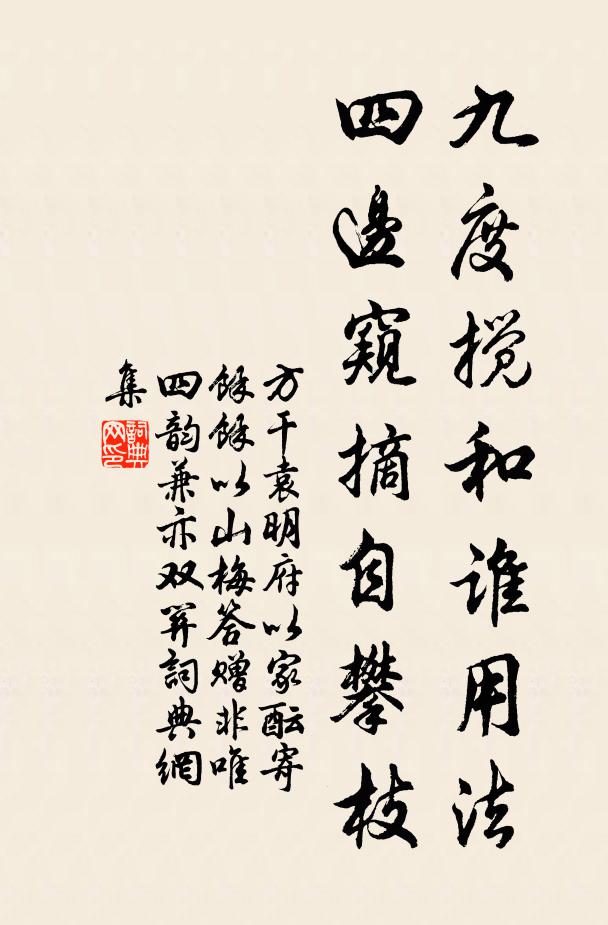 九度搅和谁用法
四邊窺摘自攀枝
方干袁明府以家酝寄
餘餘以山梅答赠非唯
四韵兼亦双关詞典網
集
詞典网印